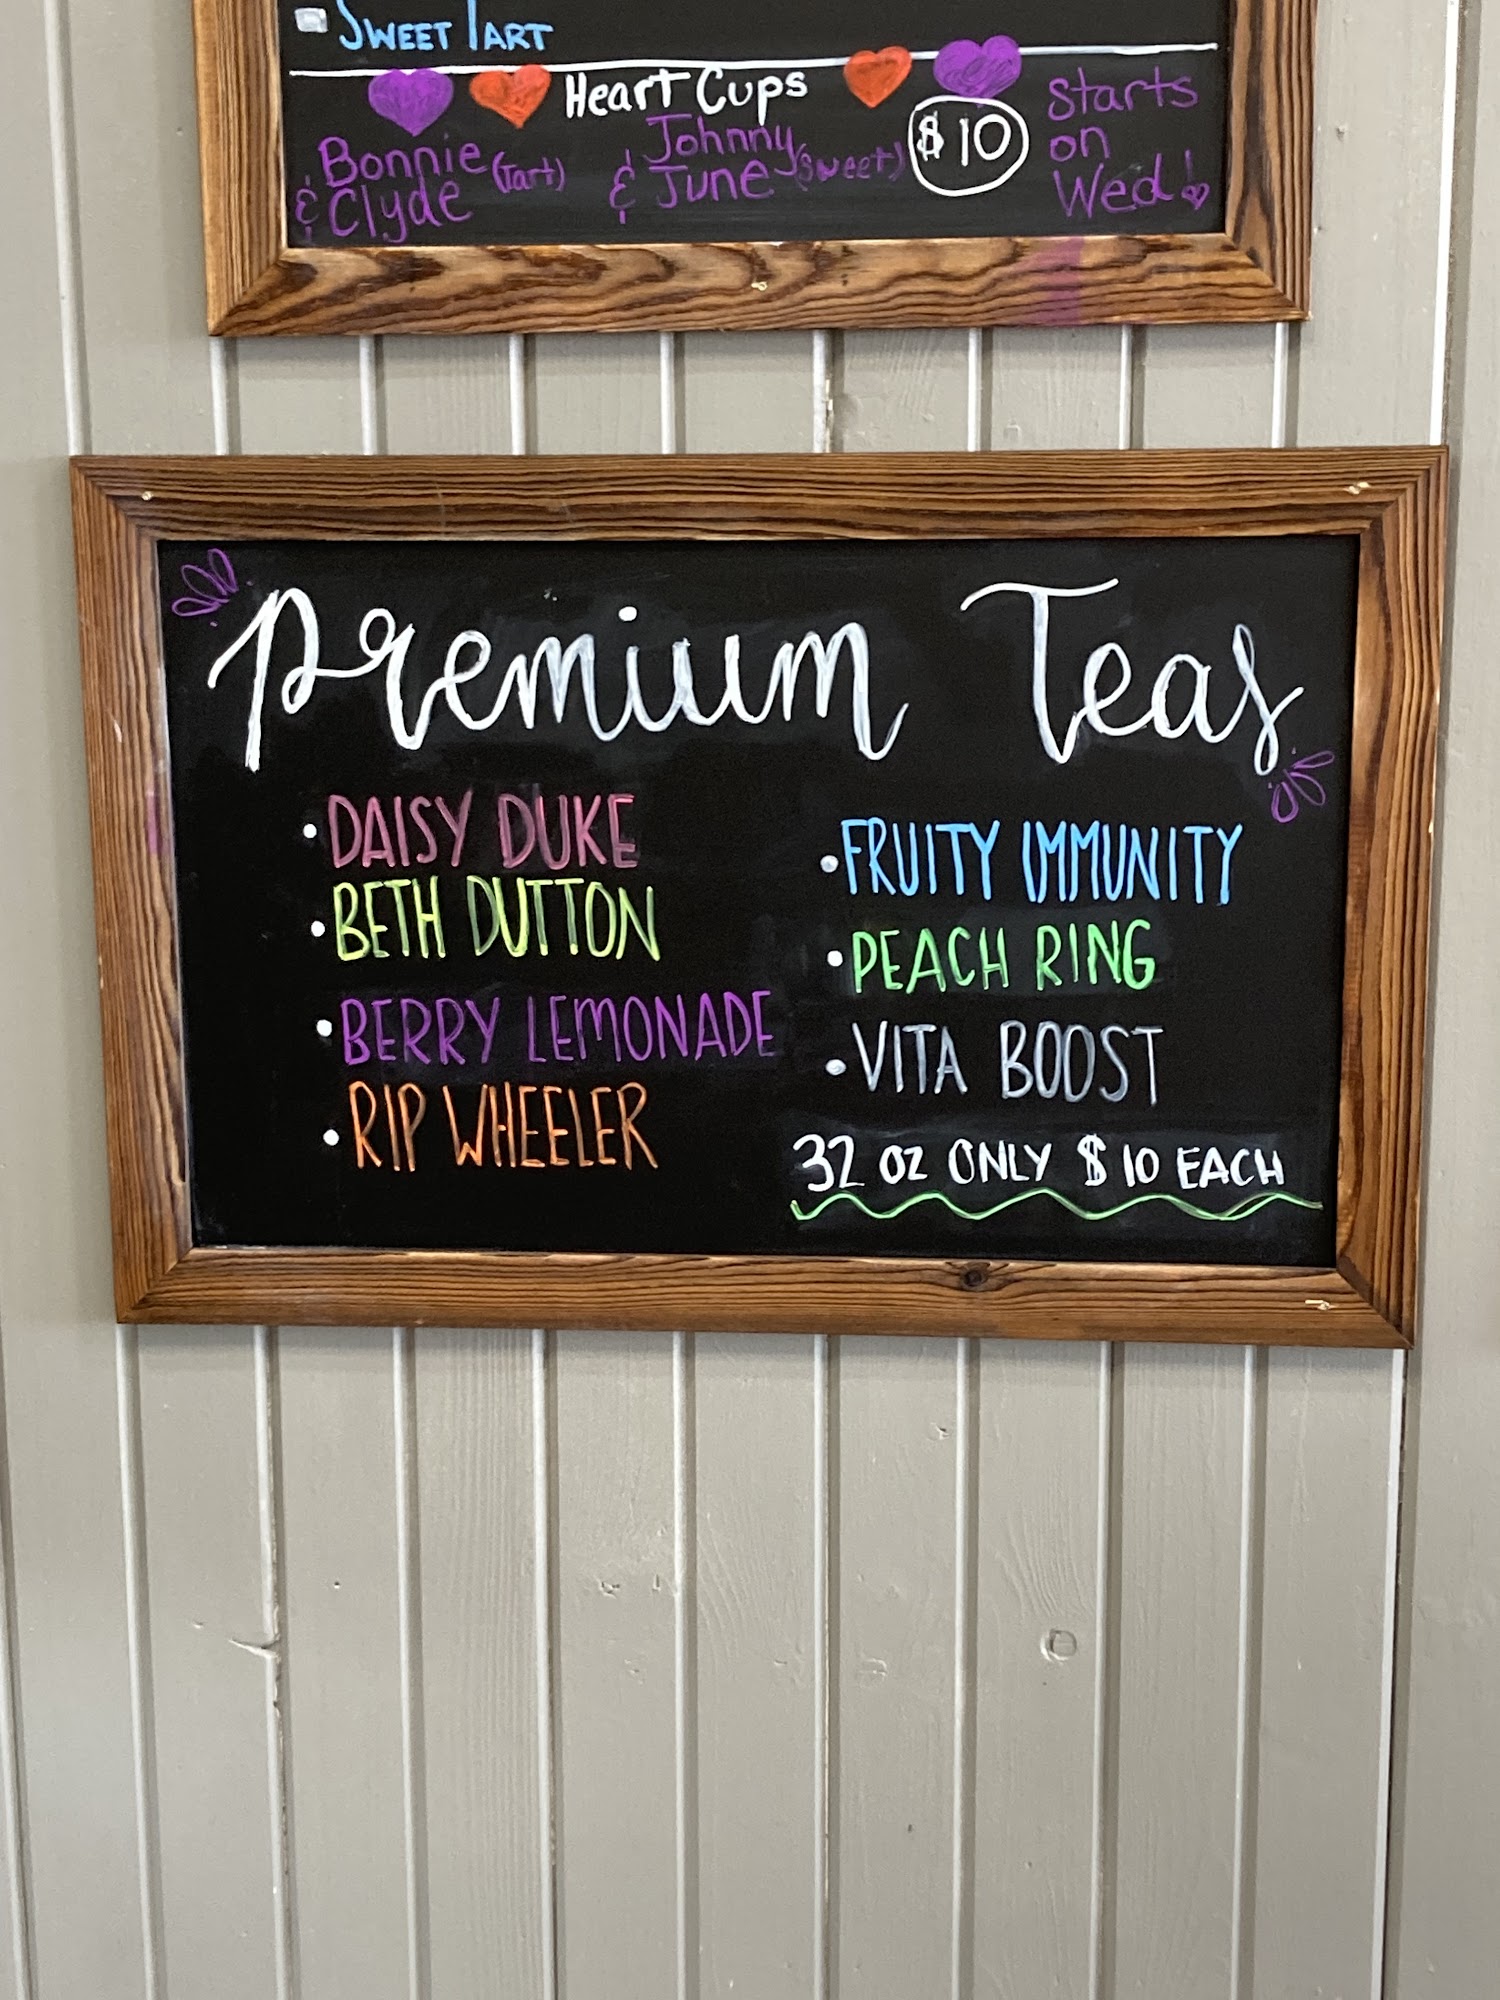 Sweet Tart
Heart Cups
Bonnie
& Clyde (Tart)
Johnny
& June (Sweet)
$10
Starts
on
Wed!
Premium Teas
• DAISY DUKE
• BETH DUTTON
• BERRY LEMONADE
• RIP WHEELER
• FRUITY IMMUNITY
• PEACH RING
• VITA BOOST
32 OZ ONLY $10 EACH